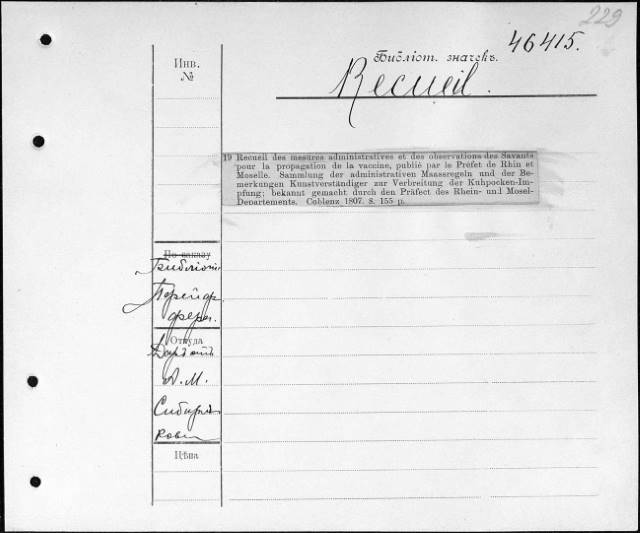 229
46415.
Библіот. значекъ.
Recueil.
Инв.
№
19 Recueil des mesures administratives et des observations des Savants
pour la propagation de la vaccine, publié par le Préfet de Rhin et
Moselle. Sammlung der administrativen Maassregeln und der Be-
merkungen Kunstverständiger zur Verbreitung der Kuhpocken-Im-
pfung; bekannt gemacht durch den Präfect des Rhein- und Mosel-
Departements. Coblenz 1807. 8. 155 p.
По заказу
Библіот.
Откуда
А. М.
Сибиря
кова
Цѣна